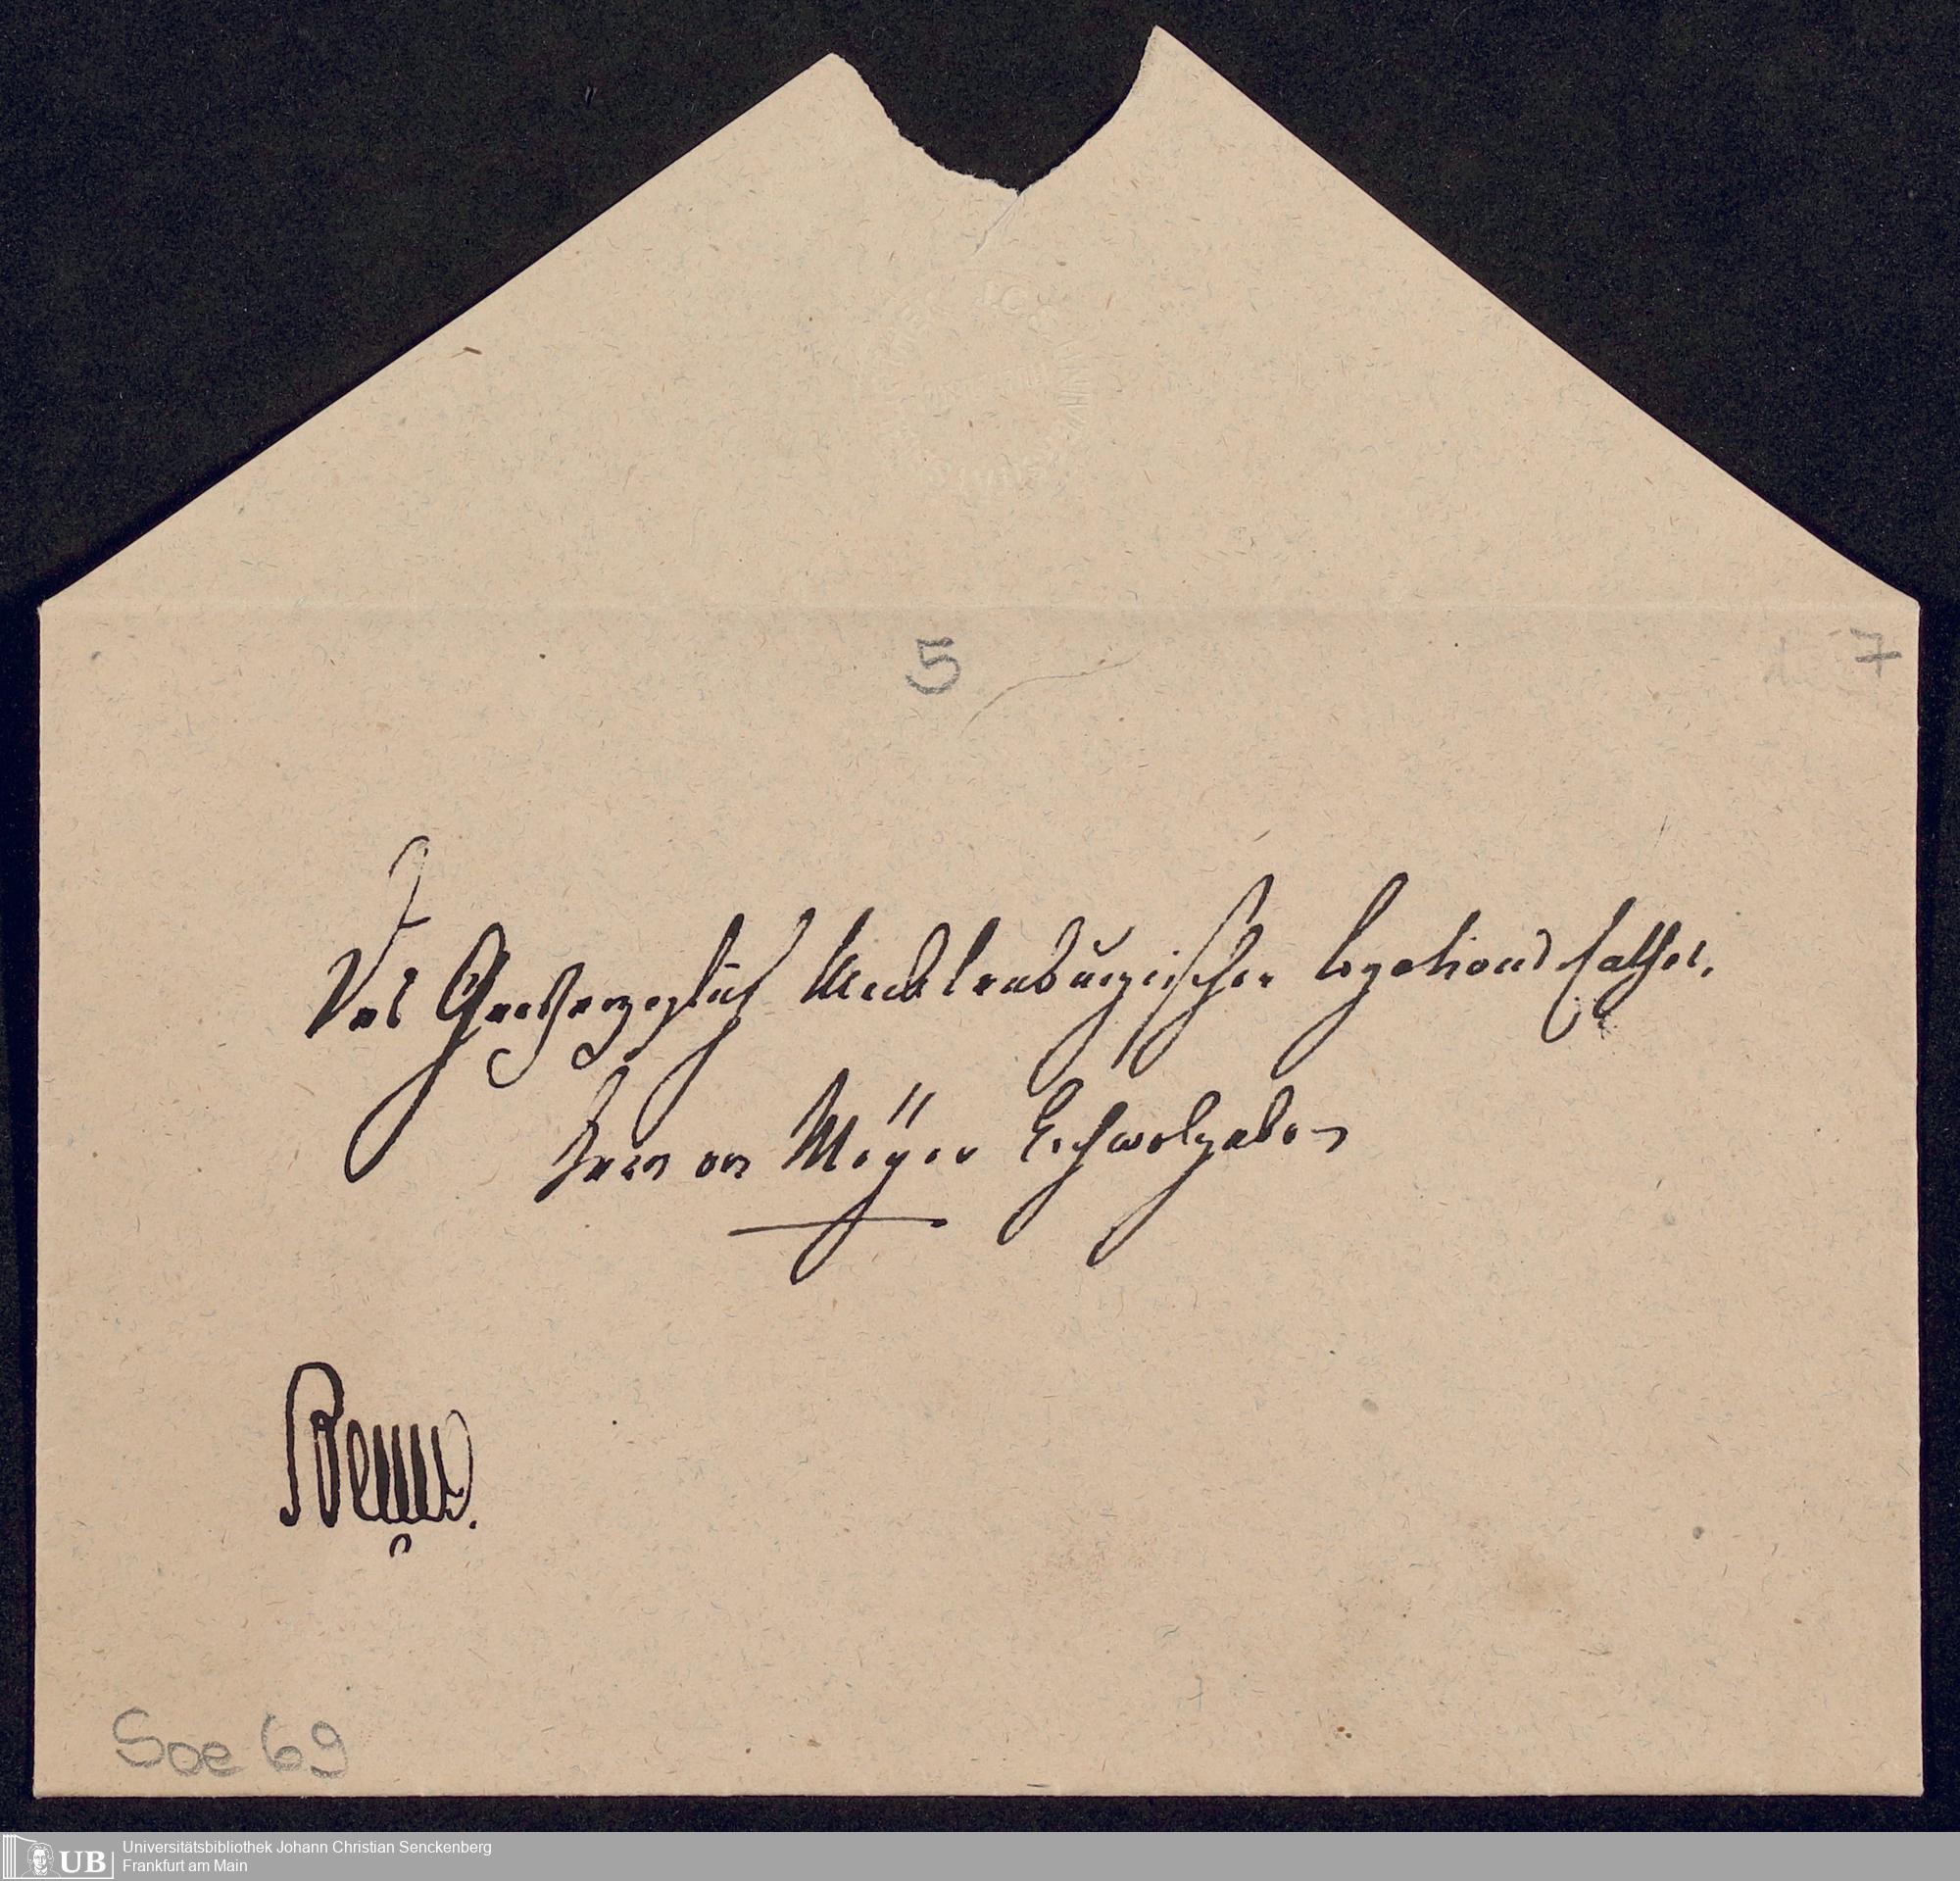 5
7
Des Großherzoglich Mecklenburgischen Legationsrathes,
Herrn von Meÿer Hochwolgeboren
Soe 69
UB
Universitätsbibliothek Johann Christian Senckenberg
Frankfurt am Main